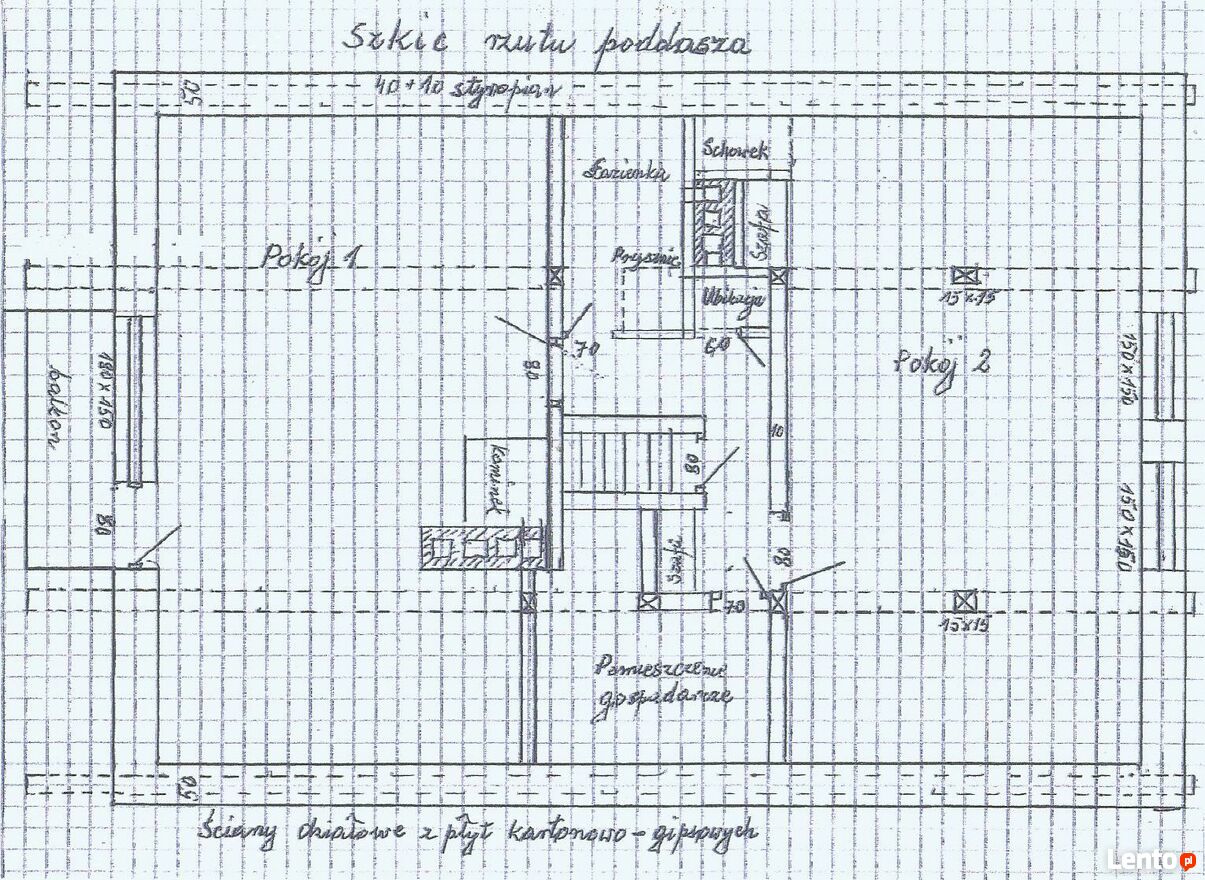 Szkic rzutu poddasza
50
40 + 10 styropian
Schowek
Łazienka
Szafa
Pokój 1
Prysznic
Ubikacja
15x15
70
60
80
Pokój 2
150 x 150
balkon
180 x 150
10
kominek
80
80
150 x 150
Szafa
80
70
15x15
Pomieszczenie
gospodarcze
50
Ściany działowe z płyt kartonowo - gipsowych
Lento pl